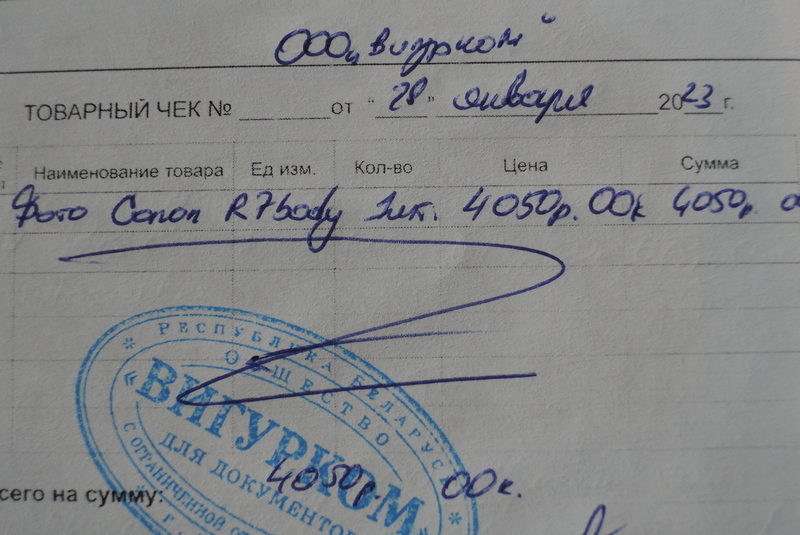 ООО „Вигурком"
ТОВАРНЫЙ ЧЕК № ____ от "28" января 2023 г.
Наименование товара Ед изм. Кол-во Цена Сумма
Фото Canon R7 body 1шт. 4050р. 00к 4050р.
РЕСПУБЛИКА БЕЛАРУСЬ
ОБЩЕСТВО
«ВИГУРКОМ»
ДЛЯ ДОКУМЕНТОВ
С ОГРАНИЧЕННОЙ
сего на сумму: 4050р. 00к.